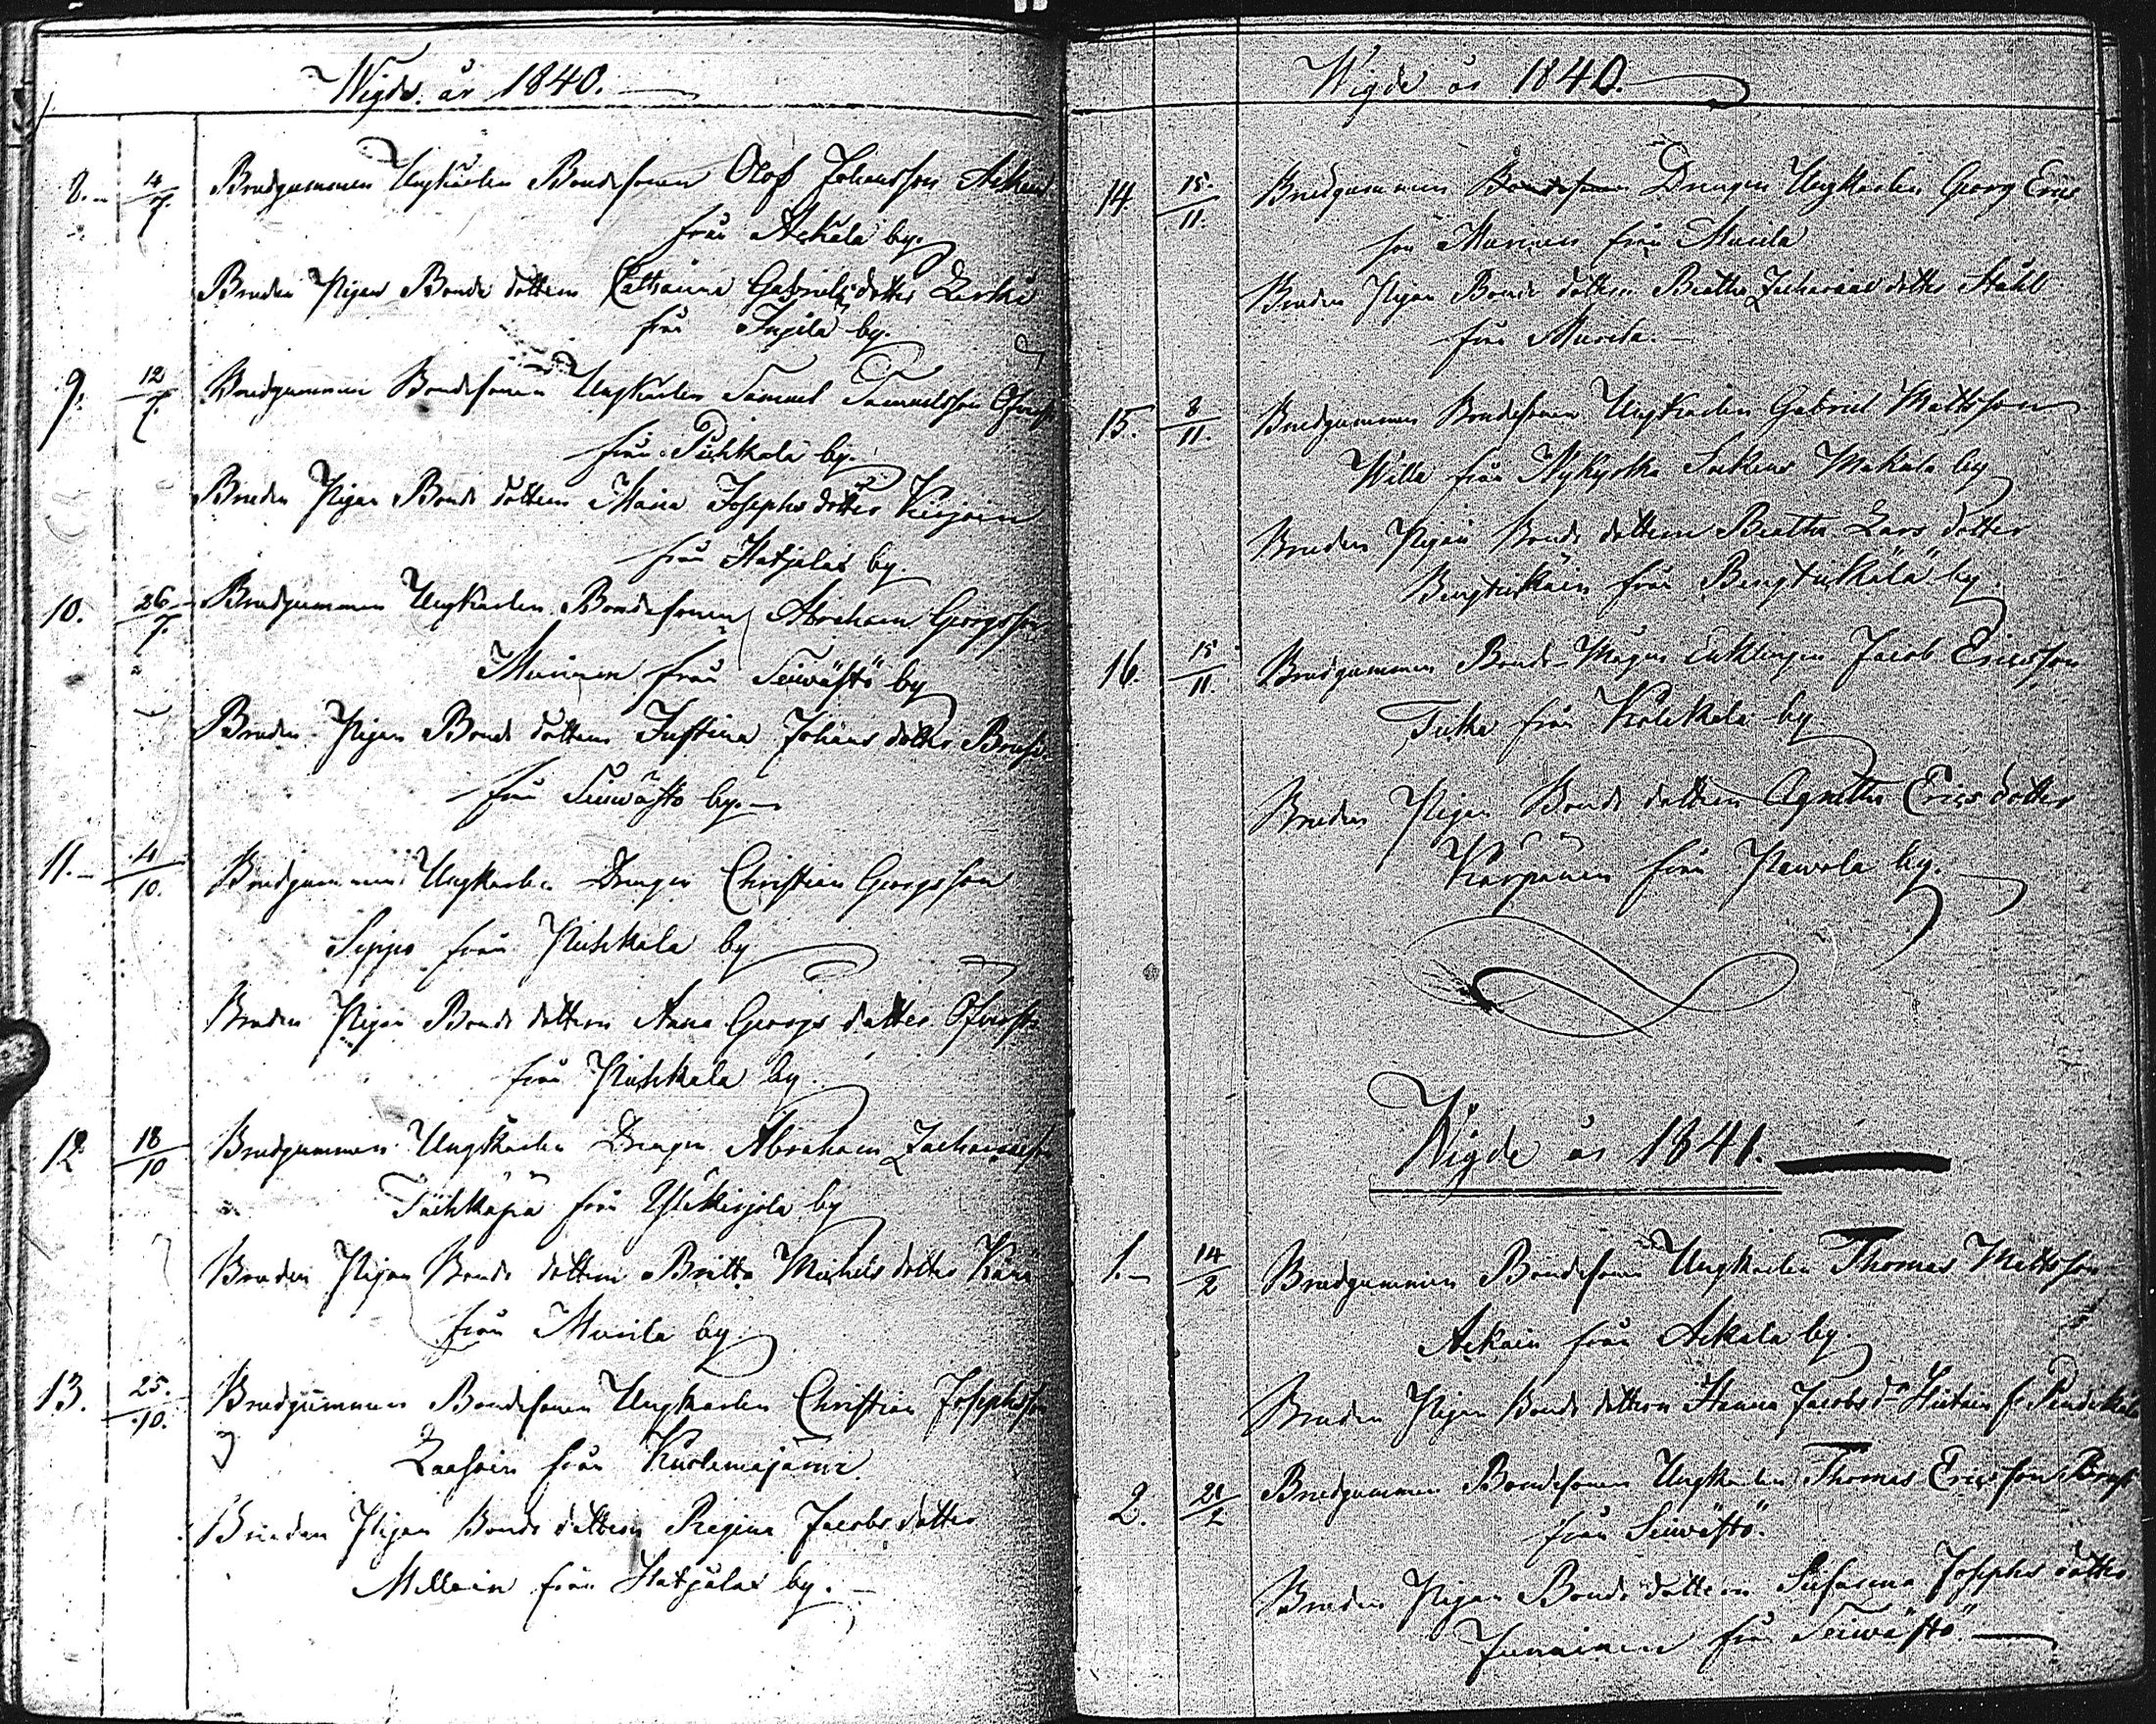 Wigde år 1840.
8. 4/7. Brudgummen Ungkarlen Bondesonen Olof Johansson
från Ackala by.
Bruden Pigan Bonde dottern Catharina Gabriels dotter
från by.
9. 12/7. Brudgummen Bondesonen Ungkarlen Samuel Samuelsson
från Puhkala by.
Bruden Pigan Bonde dottern Maria Josephs dotter
från Hatjalax by.
10. 26/7. Brudgummen Ungkarlen Bondesonen Abraham Georgsson
Muurinen från Seiwästö by
Bruden Pigan Bonde dottern Justina Johans dotter
från Seiwästö by.
11. 4/10. Brudgummen Ungkarlen Drengen Christian Georgsson
Seppo från Puhkala by
Bruden Pigan Bonde dottern Anna Georgs dotter
från Puhkala by.
12 18/10 Brudgummen Ungkarlen Drengen Abraham Zachariasson
från by
Bruden Pigan Bonde dottern Britta Michels dotter
från Muurila by.
13. 25./10. Brudgummen Bondesonen Ungkarlen Christian Josephsson
från Kuolemajärvi
Bruden Pigan Bonde dottern Regina Jacobs dotter
från Hatjalax by.
Wigde år 1840.
14 15./11. Brudgummen Bondesonen Drengen Ungkarlen Georg Erics
son från Muurila
Bruden Pigan Bonde dottern Beatha Zacharias dotter Ståhl
från Muurila.
15. 8/11. Brudgummen Bondesonen Ungkarlen Gabriel Mattsson
Willa från Nykyrka Sockens by
Bruden Pigan Bonde dottern Beatha Lars dotter
från by
16. 15/11. Brudgummen Bonde Mågen Enklingen Jacob Ericsson
från by
Bruden Pigan Bonde dottern Agnetha Erics dotter
Karpanen från by.
Wigde år 1841.
1. 14/2 Brudgummen Bondesonen Ungkarlen Thomas Mattsson
Ackain från Ackala by.
Bruden Pigan Bonde dottern Hanna Jacobs dr f.
2. 21/2 Brudgummen Bondesonen Ungkarlen Thomas Ericsson
från Seiwästö.
Bruden Pigan Bonde dottern Susanna Josephs dotter
från Seiwästö.